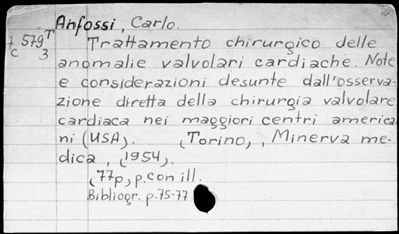 Anfossi, Carlo.
7 579 T
c 3
Trattamento chirurgico delle
anomalie valvolari cardiache. Note
e considerazioni desunte dall'osserva-
zione diretta della chirurgia valvolare
cardiaca nei maggiori centri america
ni (USA). (Torino,, Minerva me-
dica, (1954).
(77p, p. con ill.
Bibliogr. p.75-77